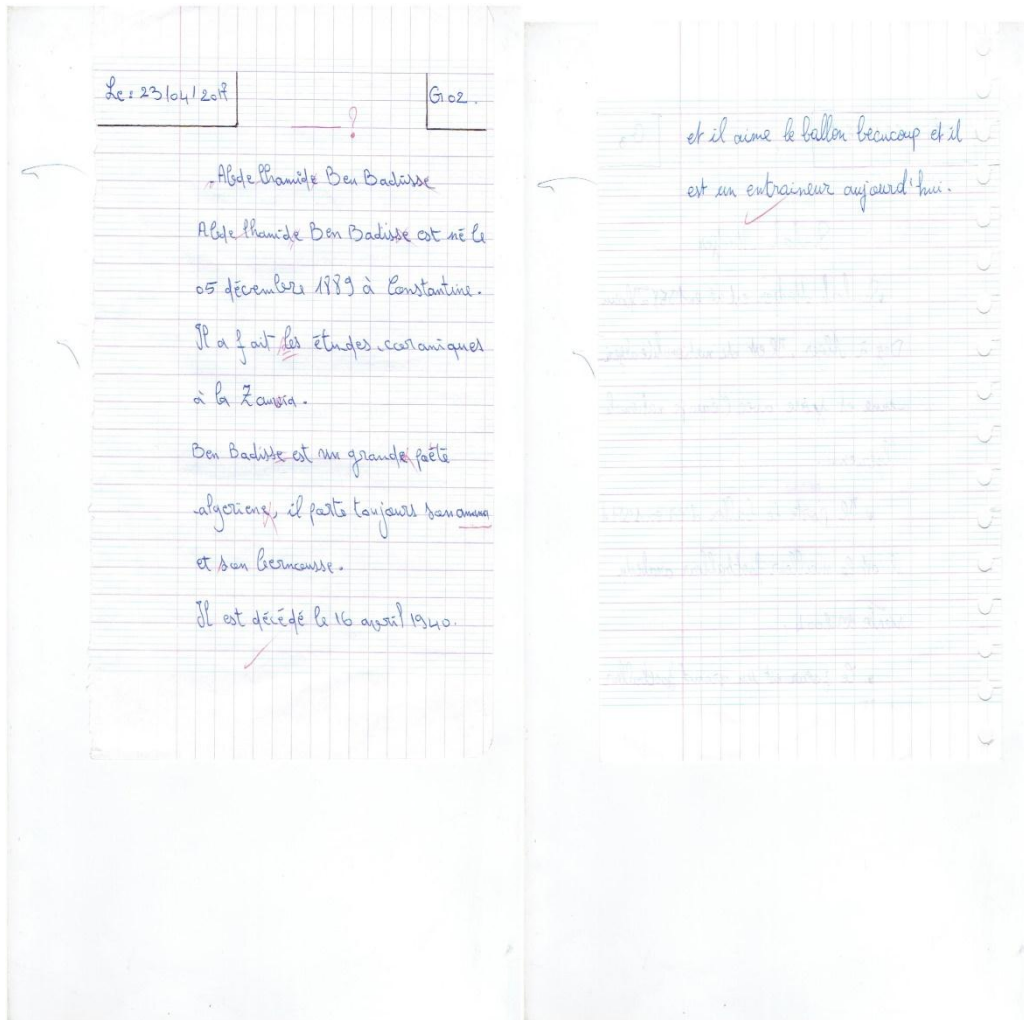 Le : 23/04/2017
G 02.
?
Abdelhamide Ben Badisse
Abdelhamide Ben Badisse est né le
05 décembre 1889 à Constantine.
Il a fait les études coraniques
à la Zawia.
Ben Badisse est un grande poète
algeriene, il porte toujours son amama
et son bernousse.
Il est décédé le 16 avril 1940.
et il aime le ballon beucoup et il
est un entraineur aujourd'hui.